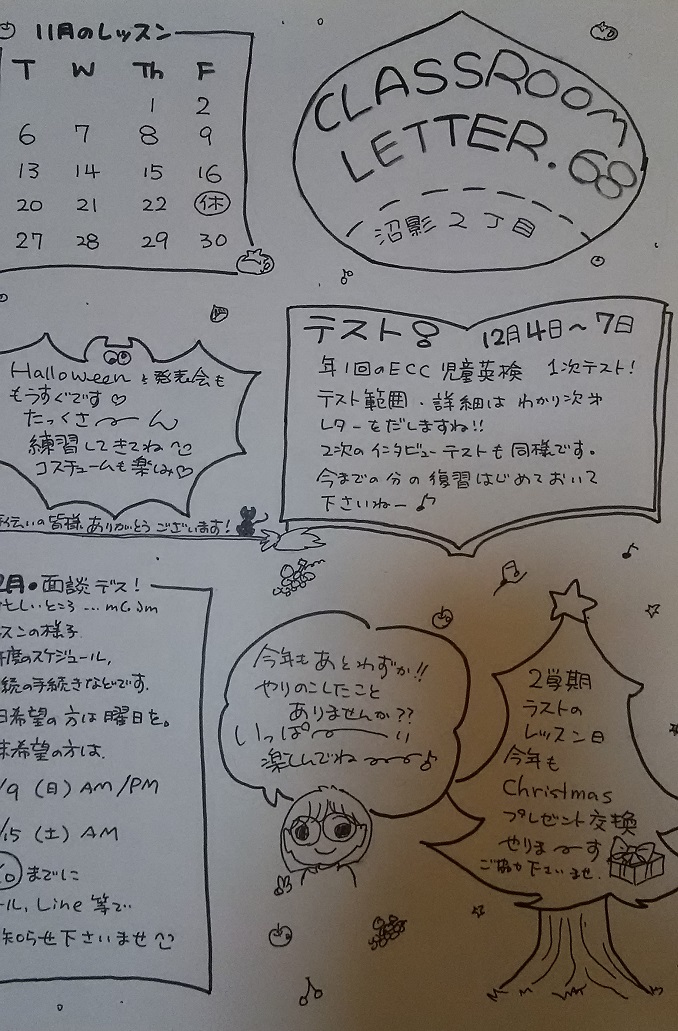 11月のレッスン
T W Th F
1 2
6 7 8 9
13 14 15 16
20 21 22 休
27 28 29 30
CLASSROOM
LETTER.68
沼影2丁目
Halloweenと発表会も
もうすぐです♡
たっくさ〜ん
練習してきてね
コスチュームも楽しみ♡
伝いの皆様ありがとうございます!
テスト 12月4日〜7日
年1回のECC児童英検 1次テスト!
テスト範囲・詳細はわかり次第
レターをだしますね!!
2次のインタビューテストも同様です。
今までの分の復習はじめておいて
下さいねー♪
2月・面談デス!
忙しいところ...m(_)m
スンの様子
年度のスケジュール,
続の手続きなどです.
日希望の方は曜日を。
末希望の方は、
/9(日)AM/PM
/15(土)AM
までに
ール,Line等で
知らせ下さいませ
今年もあとわずか!!
やりのこしたこと
ありませんか??
いっぱ〜い
楽しんでね〜♪
2学期
ラストの
レッスン日
今年も
Christmas
プレゼント交換
やりま〜す
ご協力下さいませ.